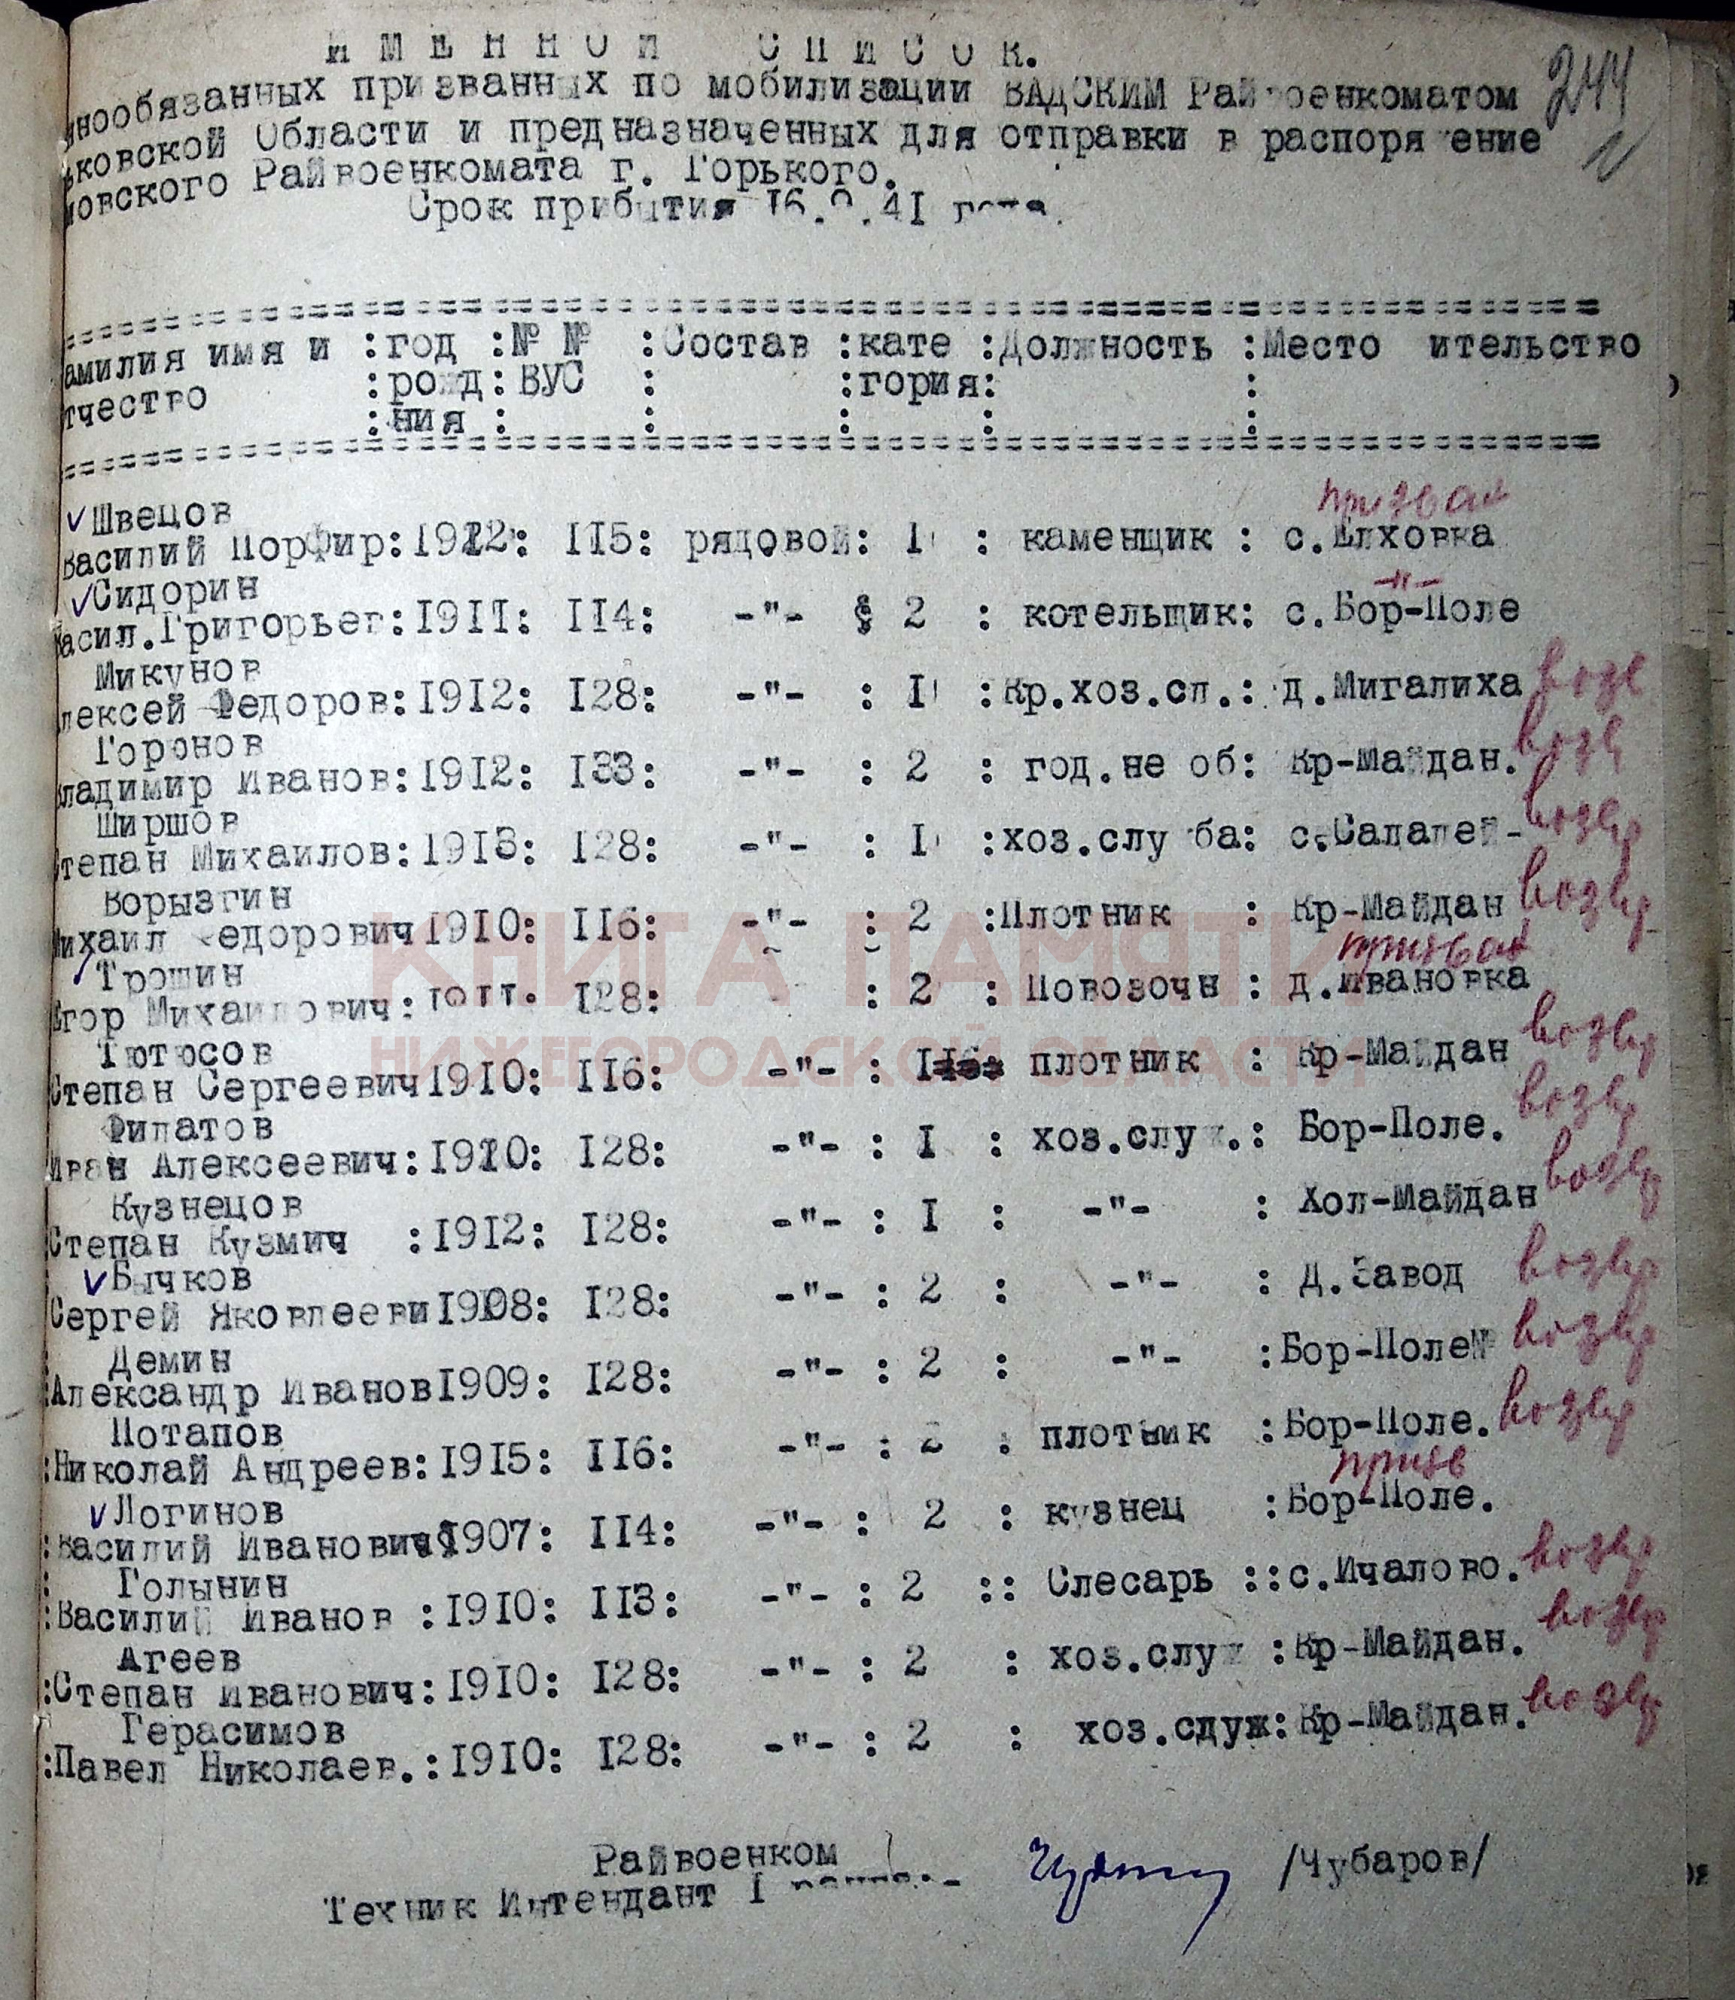 ИМЕННОЙ СПИСОК.
244
ннообязанных призванных по мобилизации ВАДСКИМ Райвоенкоматом
ьковской Области и предназначенных для отправки в распоря ение
мовского Райвоенкомата г. Горького.
Срок прибытия 16.9.41 года.
амилия имя и :год :№ № :Состав :кате :Должность :Место ительство
тчество :рожд: ВУС : :гория: :
:ния : : : : :
Швецов призван
Василий Порфир: 1912: 115: рядовой: 1 : каменщик : с.Елховка
Сидорин -"-
Васил.Григорьег: 1911: 114: -"- : 2 : котельщик: с.Бор-Поле
Микунов
лексей Федоров: 1912: 128: -"- : 1 :Кр.хоз.сл.: д.Мигалиха возв
Горонов
Владимир Иванов: 1912: 133: -"- : 2 : год.не об: Кр-Майдан. возв
Ширшов
Степан Михаилов: 1913: 128: -"- : 1 :хоз.слу ба: с.Салалей- возвр
Ворызгин
Михаил Федорович 1910: 116: -"- : 2 :Плотник : Кр-Майдан возвр
Трошин призван
Егор Михайлович: 1911: 128: : 2 : Повозочн : д.Ивановка
Тютюсов
Степан Сергеевич 1910: 116: -"- : 1 плотник : Кр-Майдан возвр
Филатов
Иван Алексеевич: 1910: 128: -"- : 1 : хоз.служ.: Бор-Поле. возвр
Кузнецов
Степан Кузмич : 1912: 128: -"- : 1 : -"- : Хол-Майдан возвр
Бычков
Сергей Яковлееви 1908: 128: -"- : 2 : -"- : Д.Завод возвр
Демин
:Александр Иванов 1909: 128: -"- : 2 : -"- :Бор-Поле№ возвр
Потапов
:Николай Андреев: 1915: 116: -"- : 2 : плотник :Бор-Поле. возвр
Логинов призв
:Василий Иванович 1907: 114: -"- : 2 : кузнец :Бор-Поле.
Голынин
:Василий Иванов : 1910: 113: -"- : 2 :: Слесарь ::с.Ичалово. возвр
Агеев
:Степан Иванович: 1910: 128: -"- : 2 : хоз.служ :Кр-Майдан. возвр
Герасимов
:Павел Николаев.: 1910: 128: -"- : 2 : хоз.служ: Кр-Майдан. возвр
Райвоенком
Техник Интендант 1 /Чубаров/
КНИГА ПАМЯТИ
НИЖЕГОРОДСКОЙ ОБЛАСТИ